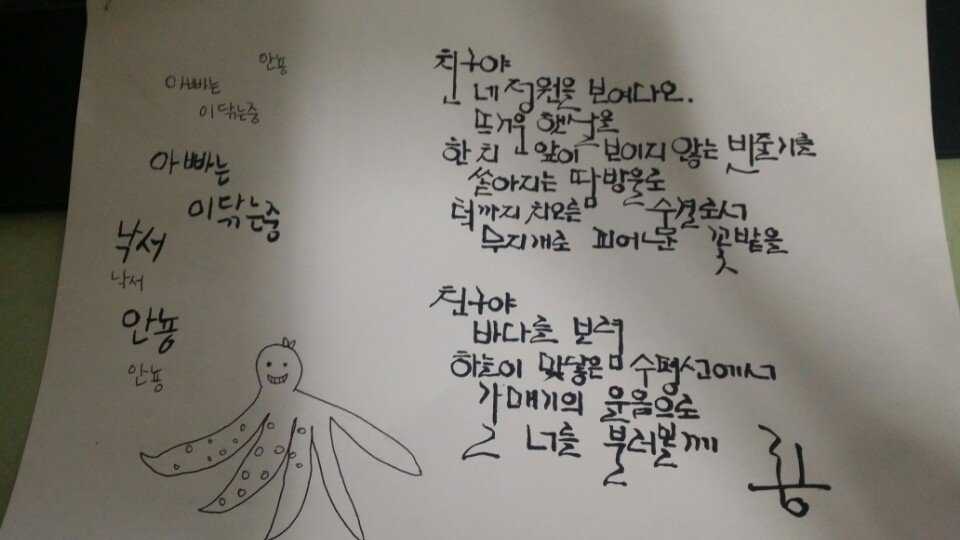 안뇽
아빠는
이닦는중
아빠는
이닦는중
낙서
낙서
안뇽
안뇽
친구야
네 정원을 보여다오.
뜨거운 햇살을
한치 앞이 보이지 않는 빗줄기를
쏟아지는 땀방울로
턱까지 치오른 숨결로서
무지개로 피어눈 꽃밭을
친구야
바다를 보렴
하늘이 맞닿은 수평선에서
갸매기의 울음으로
너를 불러볼께